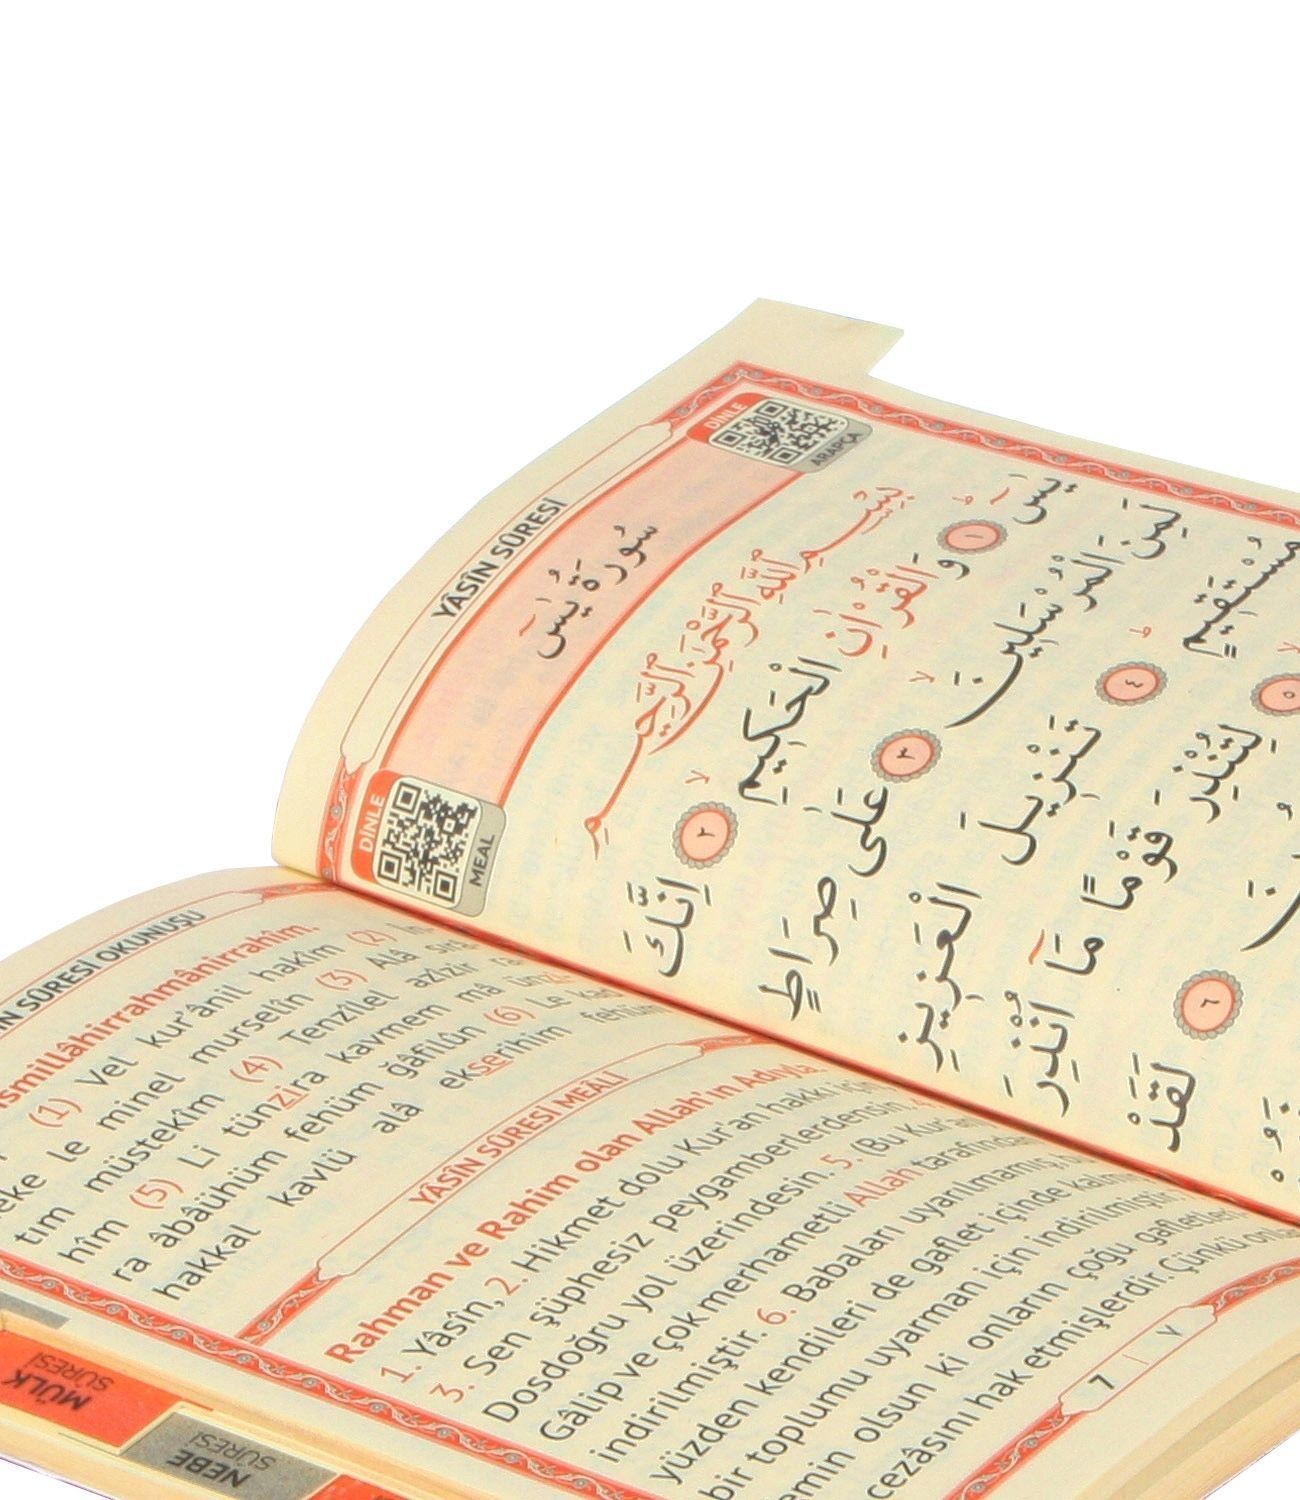 YÂSÎN SÛRESİ
DİNLE
ARAPÇA
سُورَةُ يٰسٓ
DİNLE
MEAL
بِسْمِ اللّٰهِ الرَّحْمٰنِ الرَّحِيمِ
يٰسٓ ﴿١﴾ وَالْقُرْاٰنِ الْحَكِيمِ ﴿٢﴾ اِنَّكَ
لَمِنَ الْمُرْسَلِينَ ﴿٣﴾ عَلٰى صِرَاطٍ
مُسْتَقِيمٍ ﴿٤﴾ تَنْزِيلَ الْعَزِيزِ
﴿٥﴾ لِتُنْذِرَ قَوْمًا مَٓا اُنْذِرَ
﴿٦﴾ لَقَدْ
SÛRESİ OKUNUŞU
(1) Vel kur'ânil hakîm (2) İn
le minel murselîn (3) Alâ sırâ
tım müstekîm (4) Tenzîlel azîzir ra
hîm (5) Li tünzira kavmem mâ ünzi
ra âbâühüm fehüm ğâfilûn (6) Le kad
hakkal kavlü alâ ekserihim fehüm
YÂSÎN SÛRESİ MEÂLİ
Rahman ve Rahim olan Allah'ın Adıyla.
1. Yâsîn, 2. Hikmet dolu Kur'an hakkı için
3. Sen şüphesiz peygamberlerdensin.
Dosdoğru yol üzerindesin. 5. (Bu Kur'an
Gâlip ve çok merhametli Allah tarafından
indirilmiştir. 6. Babaları uyarılmamış,
yüzden kendileri de gaflet içinde
bir toplumu uyarman için indirilmiştir.
emin olsun ki onların çoğu
cezâsını hak etmişlerdir. Çünkü
7 | ٧
MÜLK
SÛRESİ
NEBE
SÛRESİ